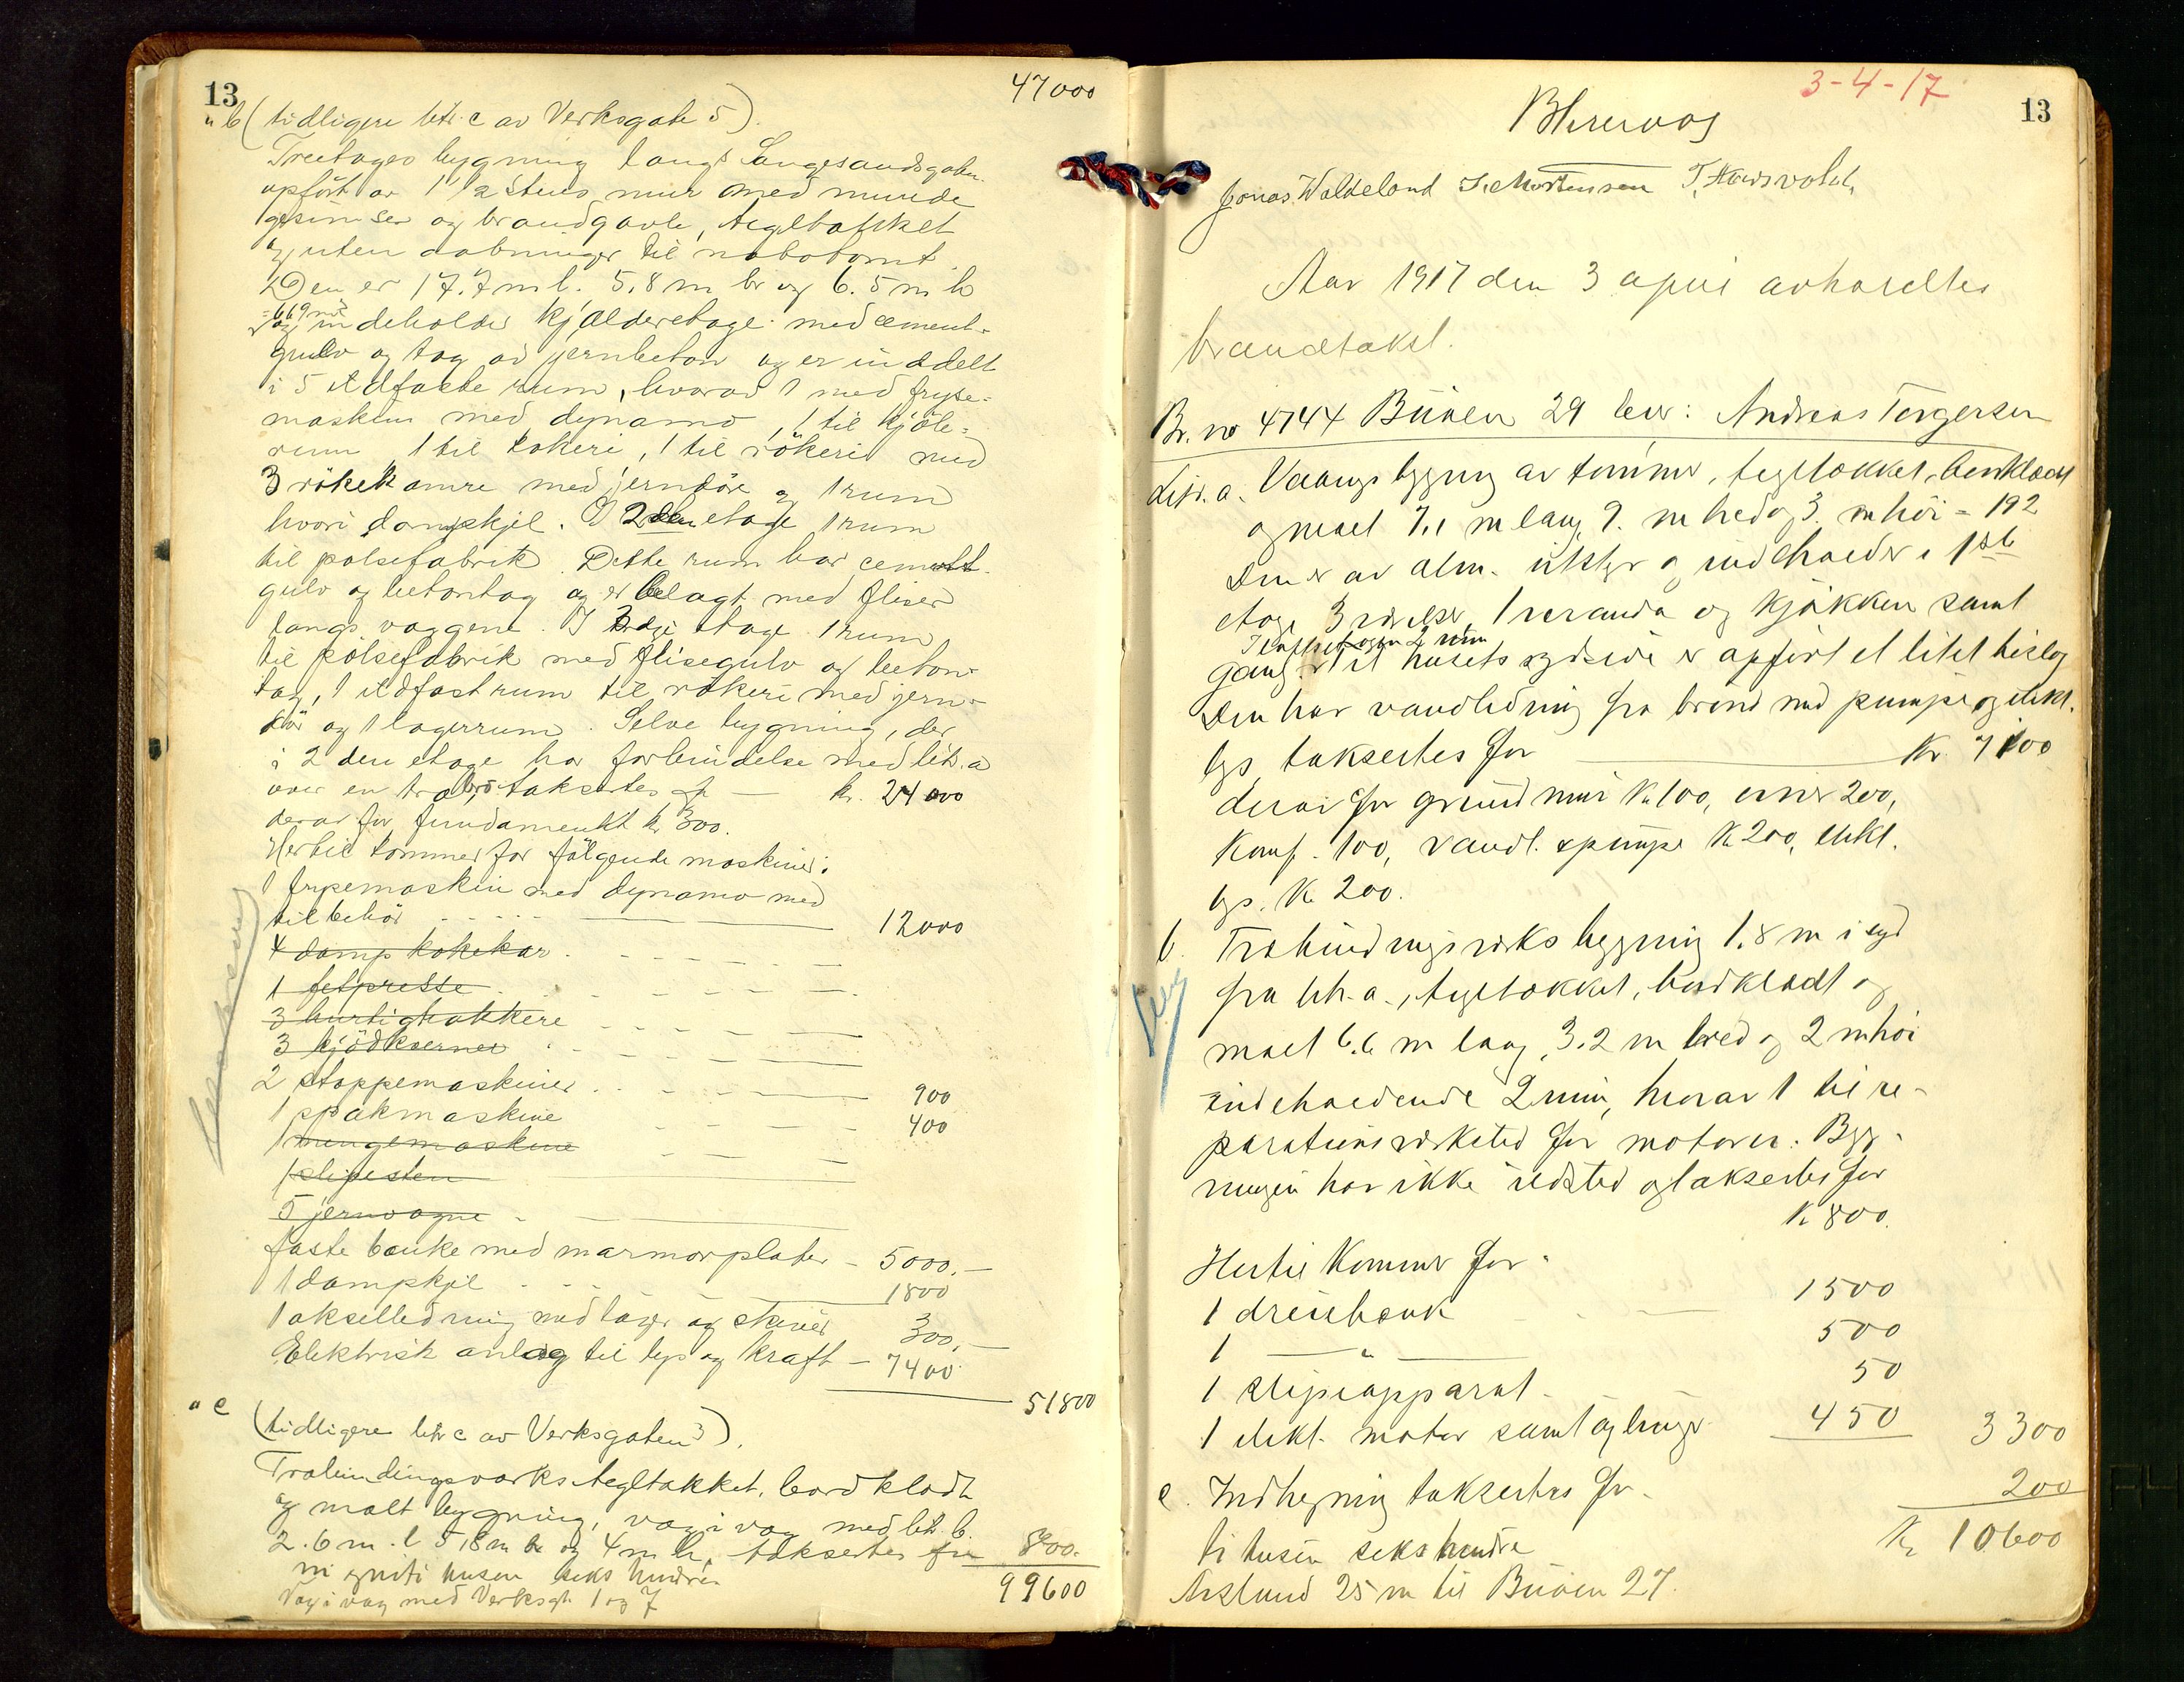 13
47000
" b (tidligere litr. c av Verksgate 5).
Treetages bygning langs Langesandsgaten
opført av 1 1/2 stens mur med murede
gesimser og brandgavle, tegltaksket
og uten aabninger til nabotomt.
Den er 17.7 m l. 5.8 m br og 6.5 m h
= 669 m3
og indeholder kjælderetage med cement-
gulv og tag av jernbeton og er inddelt
i 5 ildfaste rum, hvorav 1 med fryse-
maskin med dynamo, 1 til kjøle-
rum, 1 til kokeri, 1 til røkeri med
3 røkekamre med jerndør og 1 rum
hvori dampkjel. I 2den etage 1 rum
til pølsefabrik. Dette rum har cement-
gulv og betontag og er belagt med fliser
langs væggene. I 3dje etage 1 rum
til pølsefabrik med flisegulv og beton-
tag, 1 ildfast rum til røkeri med jern-
dør og 1 lagerrum. Selve bygning, der
i 2 den etage har forbindelse med litr. a
over en træbro taksertes for — kr. 24000
derav for fundamentet kr. 300.
Hertil kommer for følgende maskiner:
1 frysemaskin med dynamo med
tilbehør 12000
4 damp kokekar
1 fetpresse
3 hurtighakkere
3 kjødkverner
2 stoppemaskiner 900
1 spækmaskine 400
1 mengemaskine
1 slipesten
5 jernvogne
faste bænke med marmorplater - 5000.-
1 dampkjel 1800
1 akselledning med lager og skiver 300.-
Elektrisk anlæg til lys og kraft - 7400
51800
" c (tidligere litr c av Verksgaten 3).
Træbindingsverks tegltækket, bordklædt
og malt bygning, væg i væg med litr. b.
2.6 m. l 5.8 m br og 4 m h, taksertes for 800.
ni og niti tusen seks hundre 99600
Væg i væg med Verksgt. 1 og 7
3-4-17
13
Jonas Waldeland
Aar 1917 den 3 april avholdtes
brandtakst.
Br. no 4744 Buøen 29 eier: Andreas Torgersen
Litr. a. Vaanings bygning av tømmer, tegltækket, bordklædt
og malt 7.1 m lang 9. m bred og 3. m høi = 192
Den er av alm. utstyr og indeholder i 1ste
etage 3 værelser, 1 veranda og kjøkken samt
I kvistetagen 2 rum
gang. Til husets sydside er opført et litet bislag
Den har vandledning fra brønd med pumpe og elekt.
lys taksertes for Kr. 7100
derav for grundmur K. 100, ovner 200,
Komf. 100, vandl. & pumpe K 200, elekt.
lys. K. 200.
b. Træbindingsverks bygning 1.8 m i syd
fra litr. a., tegltækket, bordklædt og
malt 6.6 m lang, 3.2 m bred og 2 m høi
indeholdende 2 rum, hvorav 1 til re-
parationsverksted for motorer. Byg-
ningen har ikke ildsted og taksertes for
K 800.
Hertil kommer for:
1 dreiebænk 1500
1 — " — 500
1 slipeapparat 50
1 elekt. motor samt oplegg 450 3300
c. Indhegning taksertes for 200
ti tusen seks hundre Kr 10600
Avstand 25 m til Buøen 27.